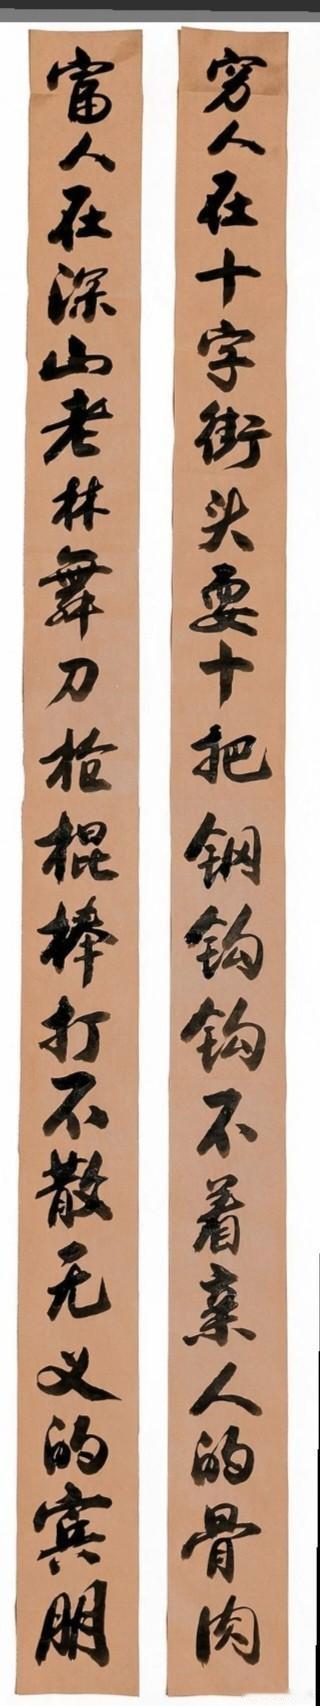 穷人在十字街头耍十把钢钩钩不着亲人的骨肉
富人在深山老林舞刀枪棍棒打不散无义的宾朋